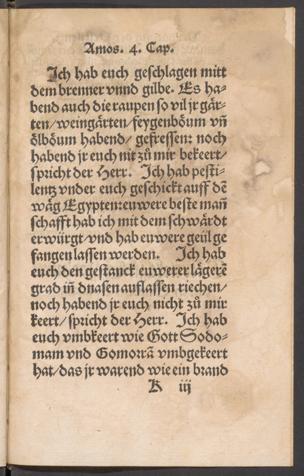 Amos. 4. Cap.
Ich hab euch geschlagen mitt
dem brenner vnnd gilbe. Es ha-
bend auch die raupen so vil jr går-
ten/ weingärten/ feygenböum vñ
ölböum habend/ gefressen: noch
habend jr euch nit zů mir bekeert/
spricht der Herr. Ich hab pesti-
lentz vnder euch geschickt auff dē
wäg Egypten: euwere beste mañ
schafft hab ich mit dem schwärdt
erwürgt/ vnd hab euwere geül ge
fangen lassen werden. Ich hab
euch den gestanck euwerer lägerē
grad iñ dnasen auflassen riechen/
noch habend jr euch nicht zů mir
keert/ spricht der Herr. Ich hab
euch vmbkeert wie Gott Sodo-
mam vnd Gomorrā vmbgekeert
hat/ das jr warend wie ein brand
K iij